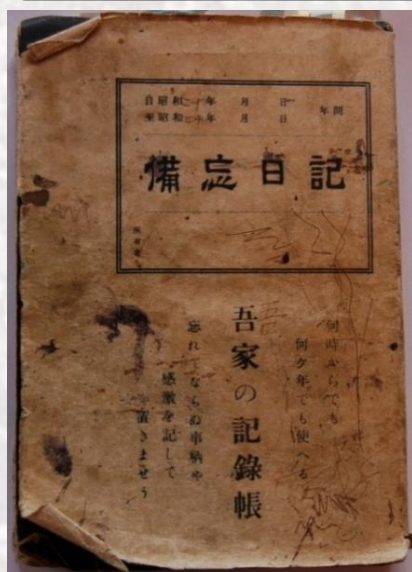 自昭和二十年 月 日
至昭和二十年 月 日
年間
備忘日記
何時からでも
何ケ年でも使へる
吾家の記錄帳
忘れてならぬ事柄や
感激を記して
置きませう